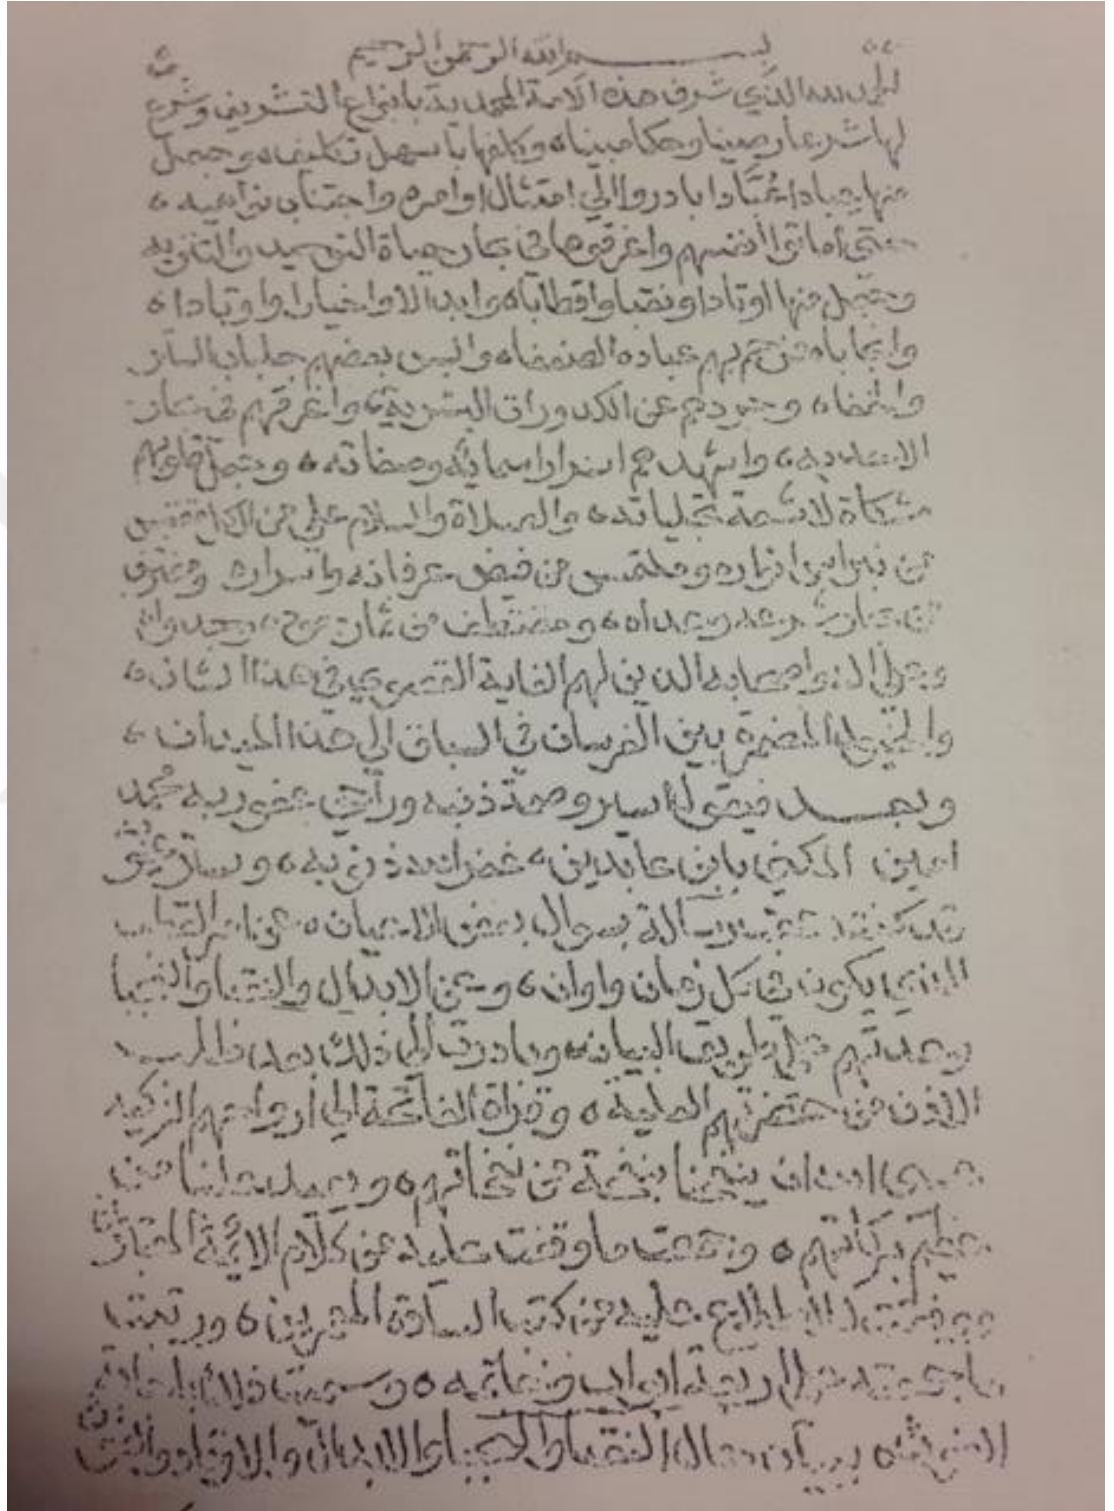 بسم الله الرحمن الرحيم
الحمد لله الذي شرف هذه الامة المحمدية بانواع التشريف وشرع
لها شرعا رصينا وحكما مبينا وكلفها باسهل تكليف وجعل
منها عبادا عبادا بادروا الي امتثال اوامره واجتناب نواهيه
حتي اماتوا انفسهم واغرقوها في بحار حياة التوحيد والتنزيه
وجعل منها اوتادا ونقبا واقطابا وابدالا واخيارا واوتادا
وانجابا رحم بهم عباده الضعفا والبس بعضهم جلباب الستر
والخفا وجردهم عن الكدورات البشرية واغرقهم في بحار
الاحدية واشهدهم اسرار اسمائه وصفاته وجعل قلوبهم
مشكاة لاشعة تجلياته والصلاة والسلام علي من الكل مقتبس
من نبراس انواره وملتمس من فيض عرفانه واسراره ومغترف
من بحار شرعه وهداه ومقتطف من ثمار
وعلي اله واصحابه الذين لهم الغاية القصوي في هذا الشان
والخيل المضمرة بين الفرسان في السباق الي هذا الميدان
وبعد فيقول اسير وصمة ذنبه وراجي عفو ربه محمد
امين المكني بابن عابدين غفر الله ذنوبه وستر
قد سوال بعض الاعيان عن امر القطب
الذي يكون في كل زمان واوان وعن الابدال والنقبا والنجبا
وعدتهم علي طريق البيان وبادرت الي ذلك بعد
الاذن من حضرتهم العلية وقراة الفاتحة الي ارواحهم الزكية
عسي الله ان ينفحنا بنفحة من نفحاتهم ويعيد علينا من
عظيم بركاتهم وجمعت ما وقفت عليه من كلام الائمة
الاطلاع عليه من كتب السادة المعتبرين ورتبت
ما جمعته علي اربعة ابواب وخاتمة وسميت ذلك باجابة
الغوث ببيان حال النقبا والنجبا والابدال والاوتاد والغوث